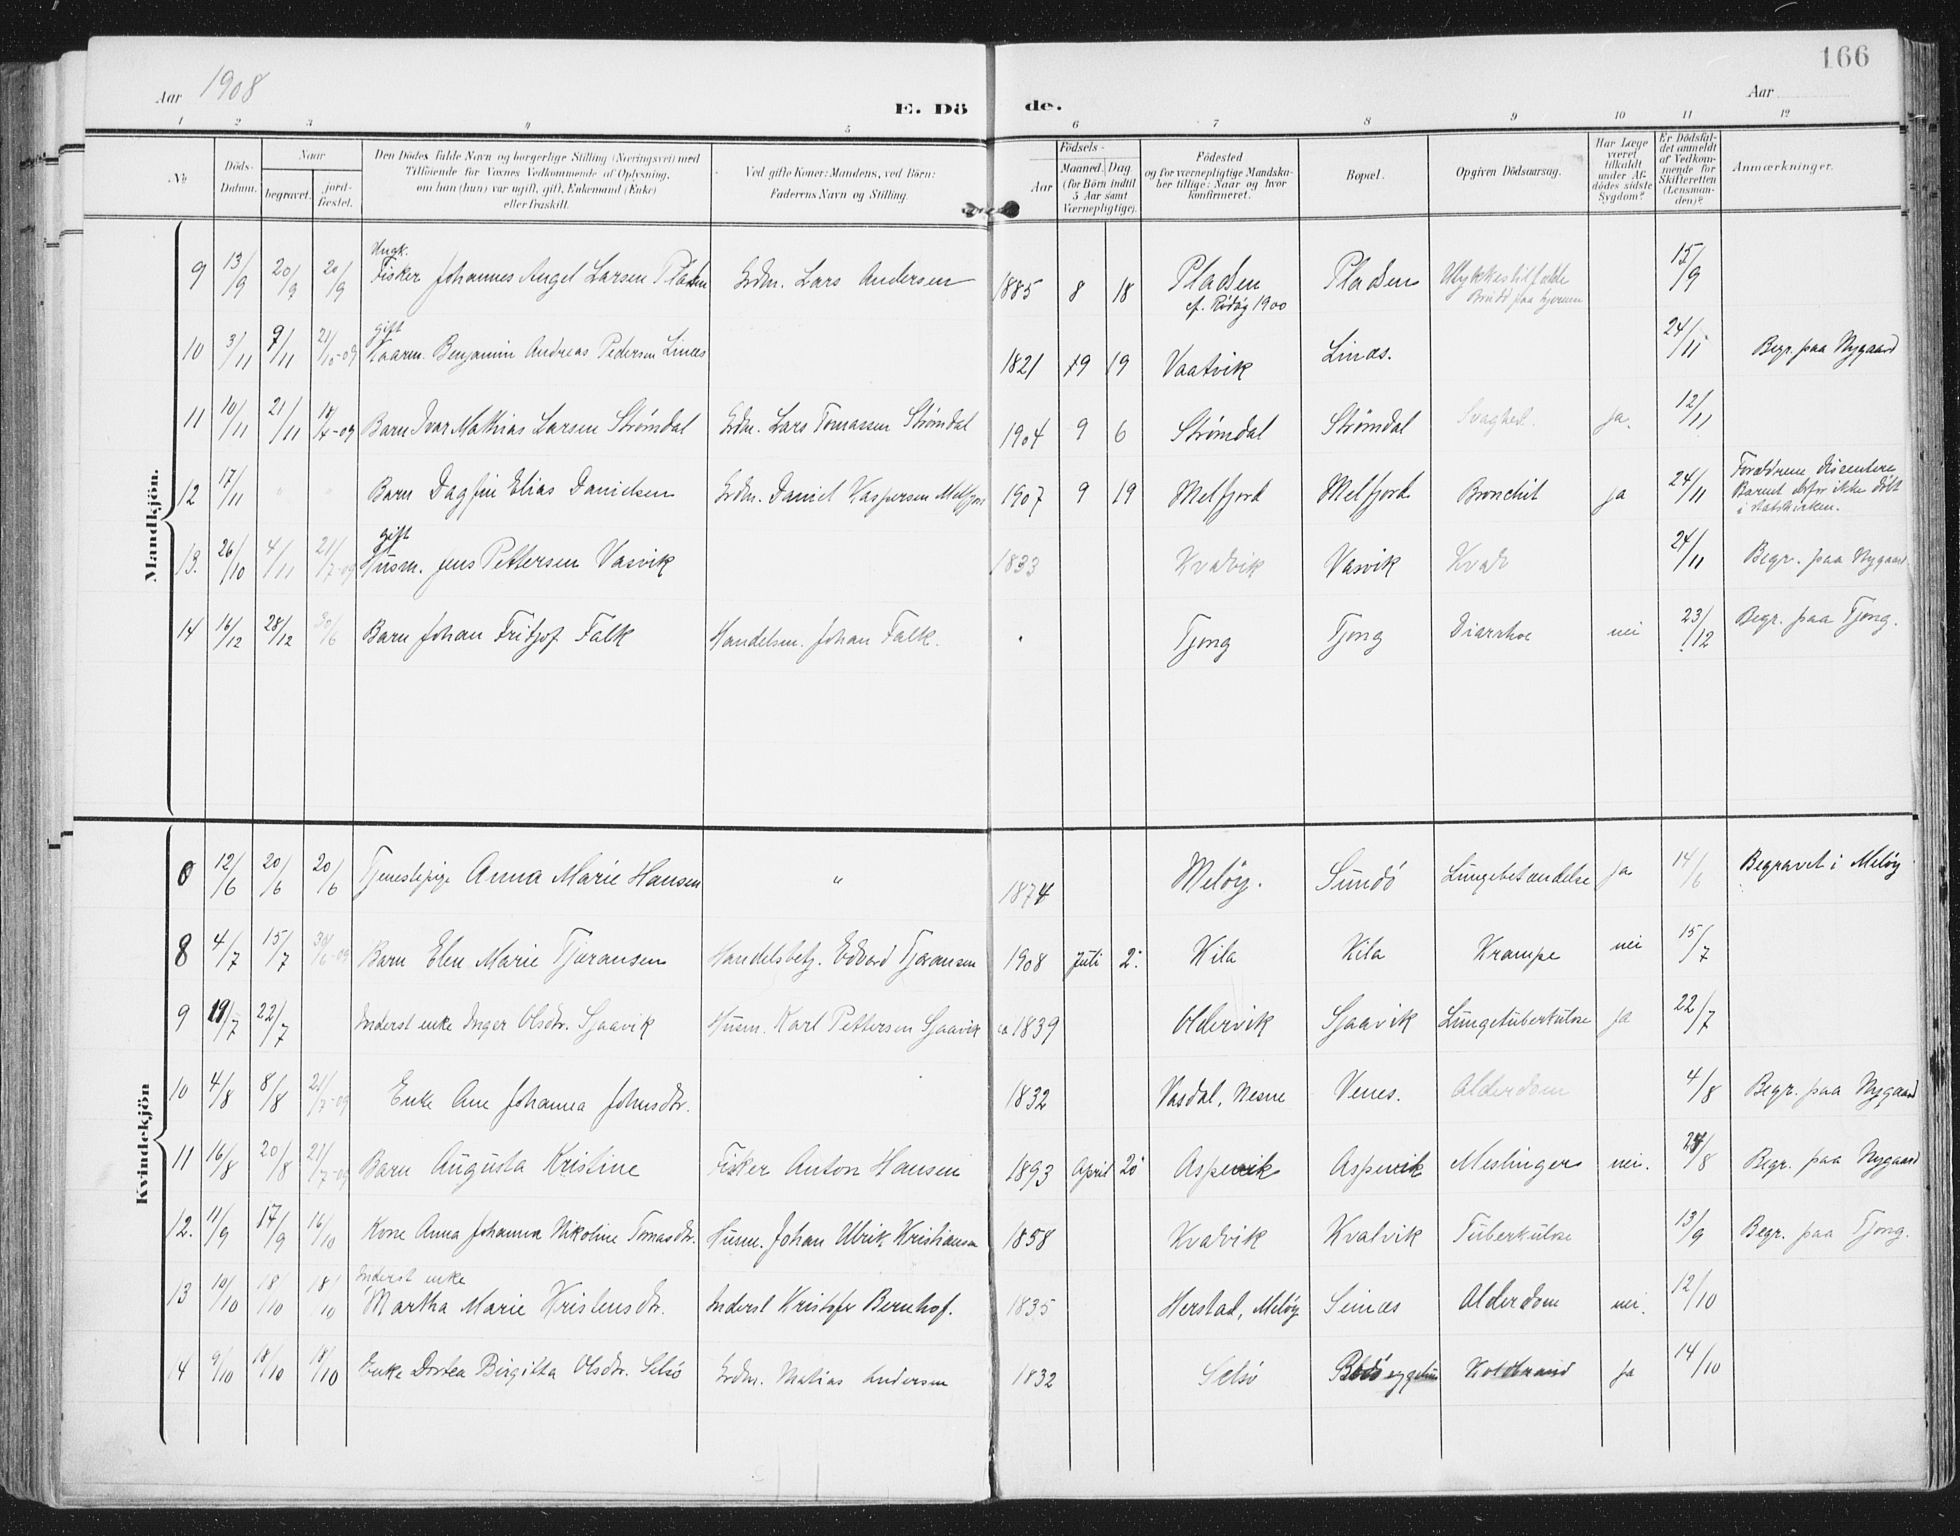 166
Aar 1908
E. Dö
de.
Aar
1 2 3 4 5 6 7 8 9 10 11 12
No.
Döds-Datum.
Naar
begravet.
jord-fæstet.
Den Dödes fulde Navn og borgerlige Stilling (Næringsvei) med
Tilföiende for Voxnes Vedkommende af Oplysning,
om han (hun) var ugift, gift, Enkemand (Enke)
eller fraskilt.
Ved gifte Koner: Mandens, ved Börn:
Faderens Navn og Stilling.
Födsels-
Aar
Maaned. Dag.
(for Börn indtil
5 Aar samt
Værnepligtige).
Födested
og for værnepligtige Mandska-
ber tillige: Naar og hvor
konfirmeret.
Bopæl.
Opgiven Dödsaarsag.
Har Læge
været
tilkaldt
under Af-
dödes sidste
Sygdom?
Er Dödsfal-
det anmeldt
af Vedkom-
mende for
Skifteretten
(Lensman-
den)?
Anmærkninger.
Mandkjön.
Ungk.
9 13/9 20/9 20/9 Fisker Johannes Angel Larsen Pladsen Grdm. Lars Andersen 1885 8 18 Pladsen Pladsen Ulykkestilfælde 15/9
cf. Rödöy 1900
gift
10 3/11 9/11 21/10-09 Kaarm. Benjamin Andreas Pedersen Linæs 1821 9 19 Vaatvik Linæs. 24/11 Begr. paa Nygaard
11 10/11 21/11 18/7-09 Barn Ivar Mathias Larsen Strömdal Grdm. Lars Tomassen Strömdal 1904 9 6 Strömdal Strömdal Svaghed. ja. 12/11
12 17/11 " " Barn Dagfin Elias Danielsen Grdm. Daniel Kaspersen Melfjord 1907 9 19 Melfjord Melfjord Bronchit ja 24/11 Forældrene dissentere
Barnet derfor ikke döbt
i statskirken.
gift
13. 26/10 4/11 21/7-09 Husm. Jens Pettersen Vasvik 1833 Kvalvik Vasvik 24/11 Begr. paa Nygaard
14 16/12 28/12 30/6 Barn Johan Fritjof Falk Handelsm. Johan Falk. Tjong Tjong Diarrhoe nei 23/12 Begr. paa Tjong.
Kvindekjön
12/6 20/6 20/6 Tjenestepige Anna Marie Hansen " 1874 Melöy. Sundö Lungebetændelse ja 14/6 Begravet i Melöy
8 4/7 15/7 30/6-09 Barn Elen Marie Tjæransen Handelsbetj. Edvard Tjæransen 1908 Juli 2. Kila Kila Krampe nei 15/7
9 19/7 22/7 Inderst enke Inger Olsdtr. Sjaavik Husm. Karl Pettersen Sjaavik ca 1839 Oldervik Sjaavik Lungetuberkulose ja 22/7
10 4/8 8/8 21/7-09 Enke Ane Johanna Johnsdtr. 1832 Vasdal, Nesne Venes. Alderdom 4/8 Begr. paa Nygaard
11 16/8 20/8 21/7-09 Barn Augusta Kristine Fisker Anton Hansen 1893 April 20 Aspevik Aspevik Meslinger nei. 24/8 Begr. paa Nygaard
12. 11/9 17/9 16/10 Kone Anna Johanna Nikoline Tomasdtr. Husm. Johan Ulrik Kristiansen 1858 Kvalvik Kvalvik Tuberkulose 13/9 Begr. paa Tjong.
Inderst enke
13 10/10 18/10 18/10 Martha Marie Kristensdtr. Inderst Kristofer Bernhof. 1835 Herstad, Melöy Seinæs Alderdom nei. 12/10
14 9/10 18/10 18/10 Enke Dortea Birgitta Olsdtr. Selsö Grdm. Matias Andersen 1832 Selsö Koldbrand ja 14/10